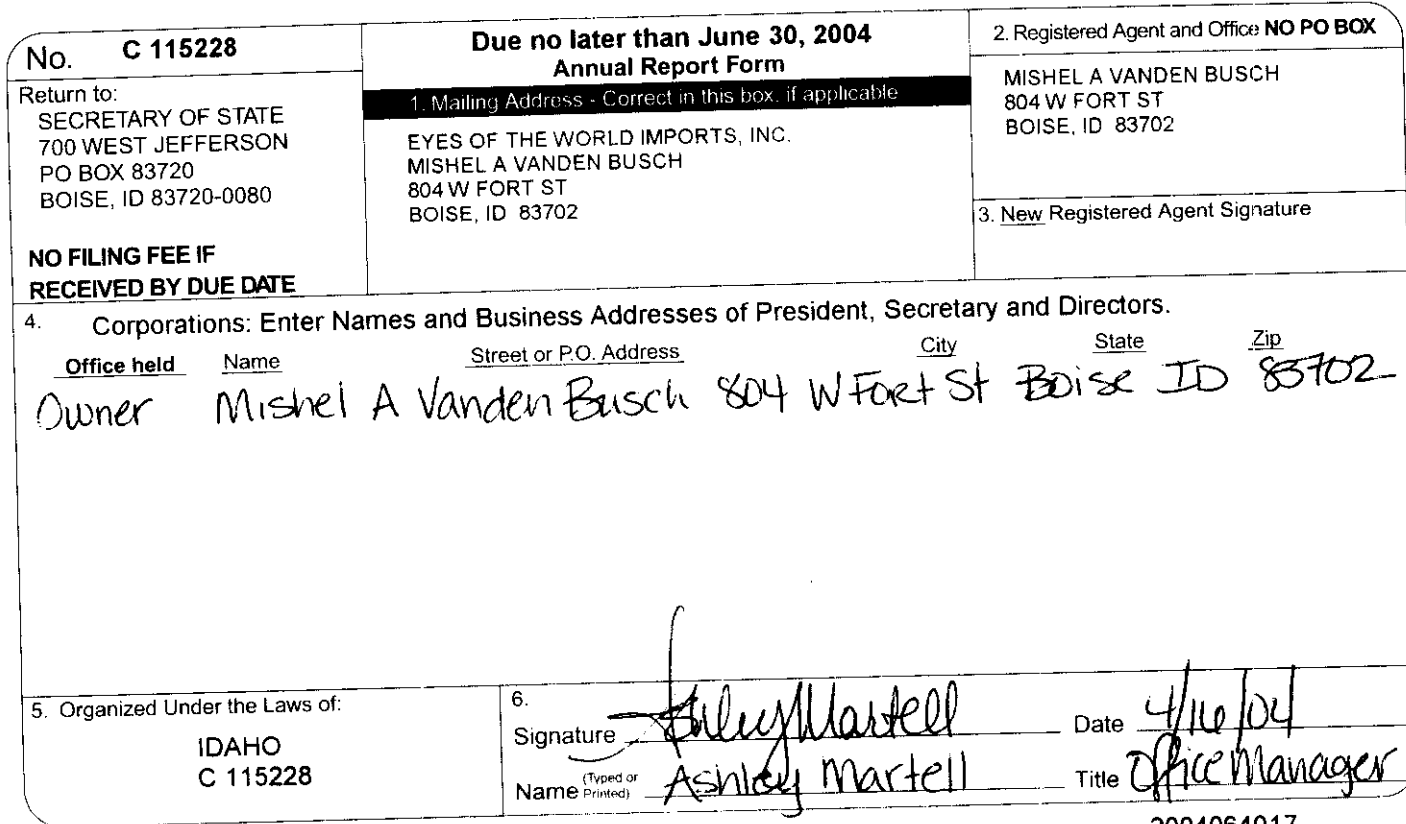 No. C 115228
Return to:
SECRETARY OF STATE
700 WEST JEFFERSON
PO BOX 83720
BOISE, ID 83720-0080
NO FILING FEE IF
RECEIVED BY DUE DATE
Due no later than June 30, 2004
Annual Report Form
1. Mailing Address - Correct in this box, if applicable
EYES OF THE WORLD IMPORTS, INC.
MISHEL A VANDEN BUSCH
804 W FORT ST
BOISE, ID 83702
2. Registered Agent and Office NO PO BOX
MISHEL A VANDEN BUSCH
804 W FORT ST
BOISE, ID 83702
3. New Registered Agent Signature
4. Corporations: Enter Names and Business Addresses of President, Secretary and Directors.
Office held Name Street or P.O. Address City State Zip
Owner Mishel A Vanden Busch 804 W Fort St Boise ID 83702
5. Organized Under the Laws of:
IDAHO
C 115228
6.
Signature Ashley Martell Date 4/16/04
Name (Typed or Printed) Ashley Martell Title Office Manager